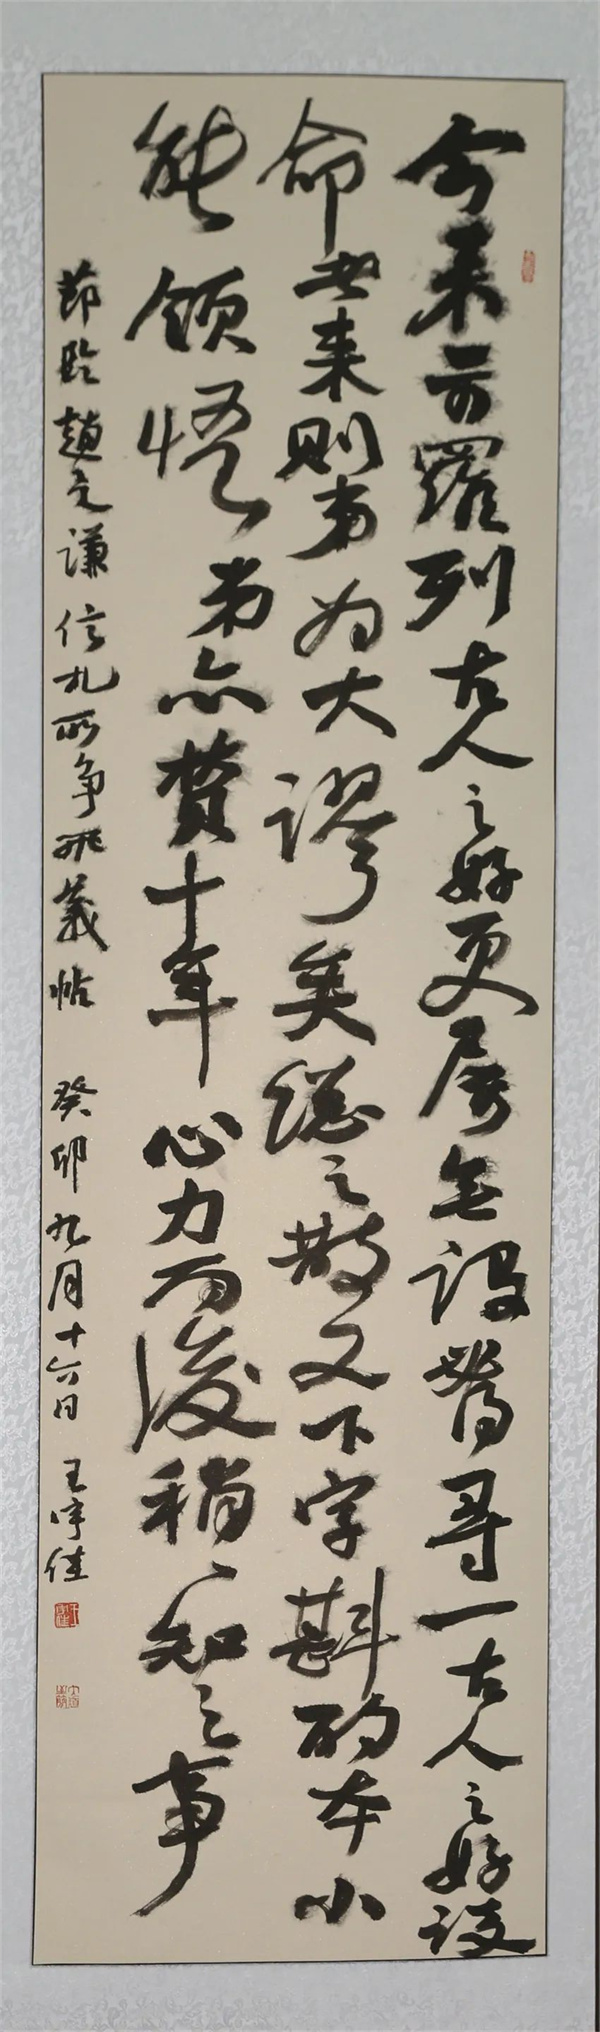 今来示罗列古人之好更属无谓替寻一古人之好谈
命世来则弟为大谬矣总之散文下字斟酌本小
能领悟弟亦费十年心力而后稍稍知之事
节临赵之谦信札所争非义帖 癸卯九月十六日 王宇佳